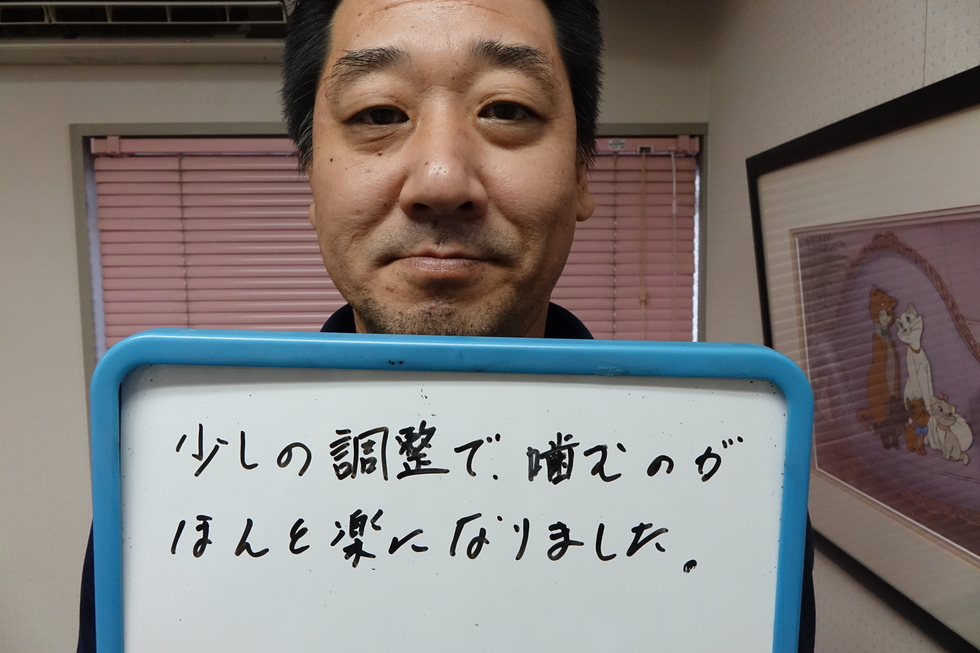 少しの調整で、噛むのが
ほんと楽になりました。